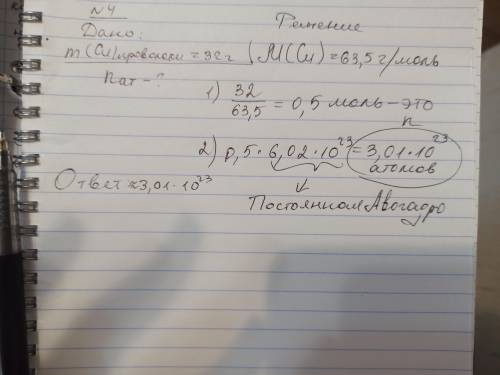 №4
Дано: Решение
m(Cu)проволоки = 32г M(Cu) = 63,5 г/моль
nат - ?
1) 32/63,5 = 0,5 моль - это n
2) 0,5 · 6,02 · 10^23 = 3,01 · 10^23 атомов
Ответ ≈ 3,01 · 10^23
Постоянная Авогадро